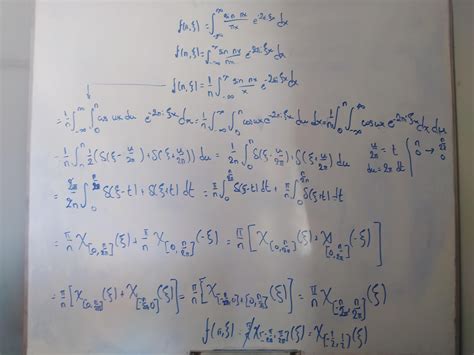 f(n,ξ) = ∫_{-∞}^{∞} sin πx / πx e^{-2πiξx} dx
f(n,ξ) = ∫_{-∞}^{∞} sin nx / nx e^{-2πiξx} dx
f(n,ξ) = 1/n ∫_{-∞}^{∞} sin nx / x e^{-2πiξx} dx
= 1/n ∫_{-∞}^{∞} ∫_0^n cos ux du e^{-2πiξx} dx = 1/n ∫_{-∞}^{∞} ∫_0^n cos ux e^{-2πiξx} du dx = 1/n ∫_0^n ∫_{-∞}^{∞} cos ux e^{-2πiξx} dx du
= 1/n ∫_0^n 1/2 (δ(ξ - u/2π) + δ(ξ + u/2π)) du = 1/2n ∫_0^n δ(ξ - u/2π) + δ(ξ + u/2π) du u/2π = t du = 2π dt { n 0 → n/2π 0
= 2π/2n ∫_0^{n/2π} δ(ξ-t) + δ(ξ+t) dt = π/n ∫_0^{n/2π} δ(ξ-t) dt + π/n ∫_0^{n/2π} δ(ξ+t) dt
= π/n χ_{[0, n/2π]}(ξ) + π/n χ_{[0, n/2π]}(-ξ) = π/n [ χ_{[0, n/2π]}(ξ) + χ_{[0, n/2π]}(-ξ) ]
= π/n [ χ_{[0, n/2π]}(ξ) + χ_{[-n/2π, 0]}(ξ) ] = π/n [ χ_{[-n/2π, 0] + [0, n/2π]}(ξ) ] = π/n χ_{[-n/2π, n/2π]}(ξ)
f(π,ξ) = χ_{[-π/2π, π/2π]}(ξ) = χ_{[-1/2, 1/2]}(ξ)